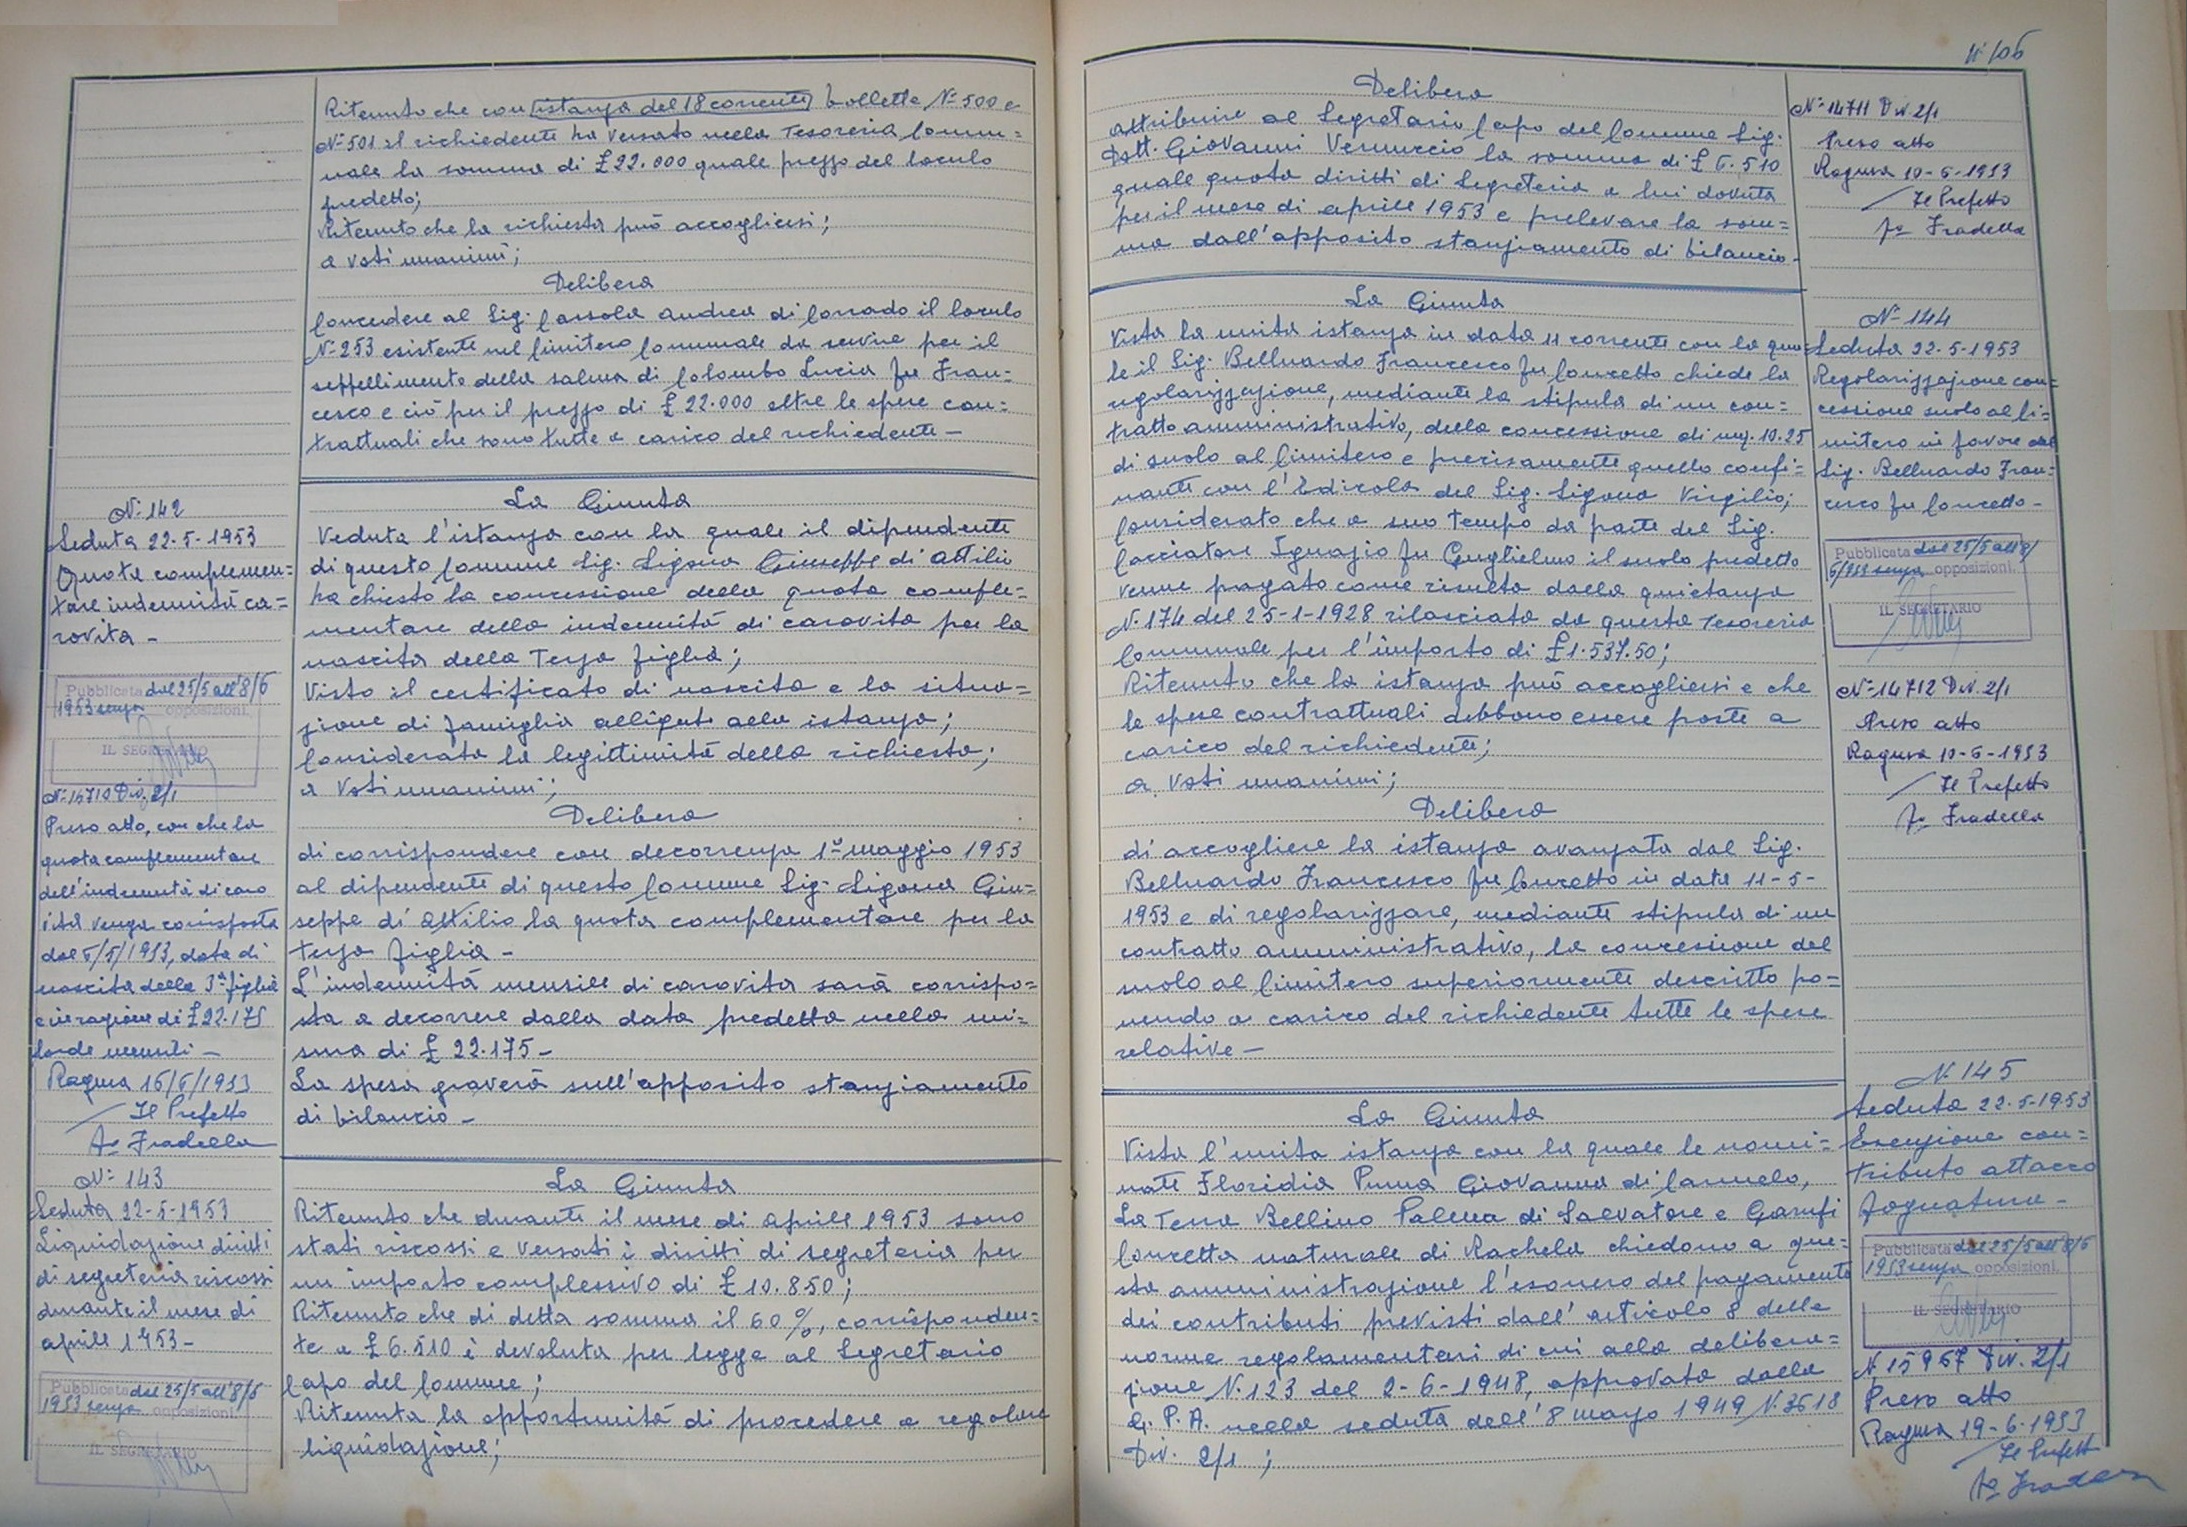 Ritenuto che con istanza del 18 corrente bollette N° 500 e
N° 501 il richiedente ha versato nella Tesoreria Comu=
nale la somma di £ 22.000 quale prezzo del loculo
predetto;
Ritenuto che la richiesta può accogliersi;
a voti unanimi;
Delibera
Concedere al Sig. Cassola Andrea di Corrado il loculo
N° 253 esistente nel Cimitero Comunale da servire per il
seppellimento della salma di Colombo Lucia fu Fran=
cesco e ciò per il prezzo di £ 22.000 oltre le spese con=
trattuali che sono tutte a carico del richiedente -
N° 142
Seduta 22-5-1953
Quota complemen=
tare indennità ca=
rovita -
Pubblicata dal 25/5 all'8/6
1953 senza opposizioni.
IL SEGRETARIO
N° 14710 Div. 2/1
Preso atto, con che la
quota complementare
dell'indennità di caro
vita venga corrisposta
dal 5/5/1953, data di
nascita della 3ª figlia
e in ragione di £ 22.175
lorde mensili -
Ragusa 16/6/1953
Il Prefetto
Fo Fradella
La Giunta
Veduta l'istanza con la quale il dipendente
di questo Comune Sig. Ligona Giuseppe di Attilio
ha chiesto la concessione della quota comple=
mentare della indennità di carovita per la
nascita della terza figlia;
Visto il certificato di nascita e la situa=
zione di famiglia alligati alla istanza;
Considerata la legittimità della richiesta;
a voti unanimi;
Delibera
di corrispondere con decorrenza 1° maggio 1953
al dipendente di questo Comune Sig. Ligona Giu=
seppe di Attilio la quota complementare per la
terza figlia -
L'indennità mensile di carovita sarà corrispo=
sta a decorrere dalla data predetta nella mi=
sura di £ 22.175 -
La spesa graverà sull'apposito stanziamento
di bilancio -
N° 143
Seduta 22-5-1953
Liquidazione diritti
di segreteria riscossi
durante il mese di
aprile 1953 -
Pubblicata dal 25/5 all'8/6
1953 senza opposizioni.
IL SEGRETARIO
La Giunta
Ritenuto che durante il mese di aprile 1953 sono
stati riscossi e versati i diritti di segreteria per
un importo complessivo di £ 10.850;
Ritenuto che di detta somma il 60%, corrisponden=
te a £ 6.510 è devoluta per legge al Segretario
Capo del Comune;
Ritenuta la opportunità di procedere a regolare
liquidazione;
106
Delibera
attribuire al Segretario Capo del Comune Sig.
Dott. Giovanni Vernuccio la somma di £ 6.510
quale quota diritti di Segreteria a lui dovuta
per il mese di aprile 1953 e prelevare la som=
ma dall'apposito stanziamento di bilancio -
N° 14711 Div. 2/1
Preso atto
Ragusa 10-6-1953
Il Prefetto
Fo Fradella
La Giunta
Vista la unita istanza in data 11 corrente con la qua=
le il Sig. Belluardo Francesco fu Concetto chiede la
regolarizzazione, mediante la stipula di un con=
tratto amministrativo, della concessione di mq. 10.25
di suolo al Cimitero e precisamente quello confi=
nante con l'Edicola del Sig. Ligona Virgilio;
Considerato che a suo tempo da parte del Sig.
Cacciatore Ignazio fu Guglielmo il suolo predetto
venne pagato come risulta dalla quietanza
N. 174 del 25-1-1928 rilasciata da questa Tesoreria
Comunale per l'importo di £ 1.537.50;
Ritenuto che la istanza può accogliersi e che
le spese contrattuali debbono essere poste a
carico del richiedente;
a voti unanimi;
Delibera
di accogliere la istanza avanzata dal Sig.
Belluardo Francesco fu Concetto in data 11-5-
1953 e di regolarizzare, mediante stipula di un
contratto amministrativo, la concessione del
suolo al Cimitero superiormente descritto po=
nendo a carico del richiedente tutte le spese
relative -
N° 144
Seduta 22-5-1953
Regolarizzazione con=
cessione suolo al Ci=
mitero in favore del
Sig. Belluardo Fran=
cesco fu Concetto -
Pubblicata dal 25/5 all'8/
6/953 senza opposizioni.
IL SEGRETARIO
N° 14712 Div. 2/1
Preso atto
Ragusa 10-6-1953
Il Prefetto
Fo Fradella
La Giunta
Vista l'unita istanza con la quale le nomi=
nate Floridia Puma Giovanna di Carmelo,
La Terra Bellino Palma di Salvatore e Garufi
Concetta naturale di Rachela chiedono a que=
sta amministrazione l'esonero del pagamento
dei contributi previsti dall'articolo 8 delle
norme regolamentari di cui alla delibera=
zione N. 123 del 2-6-1948, approvata dalla
G. P. A. nella seduta dell'8 marzo 1949 N. 3618
Div. 2/1;
N. 145
Seduta 22-5-1953
Esenzione con=
tributo attacco
fognatura -
Pubblicata dal 25/5 all'8/6
1953 senza opposizioni.
IL SEGRETARIO
N. 15957 Div. 2/1
Preso atto
Ragusa 19-6-1953
Il Prefetto
Fo Fradella